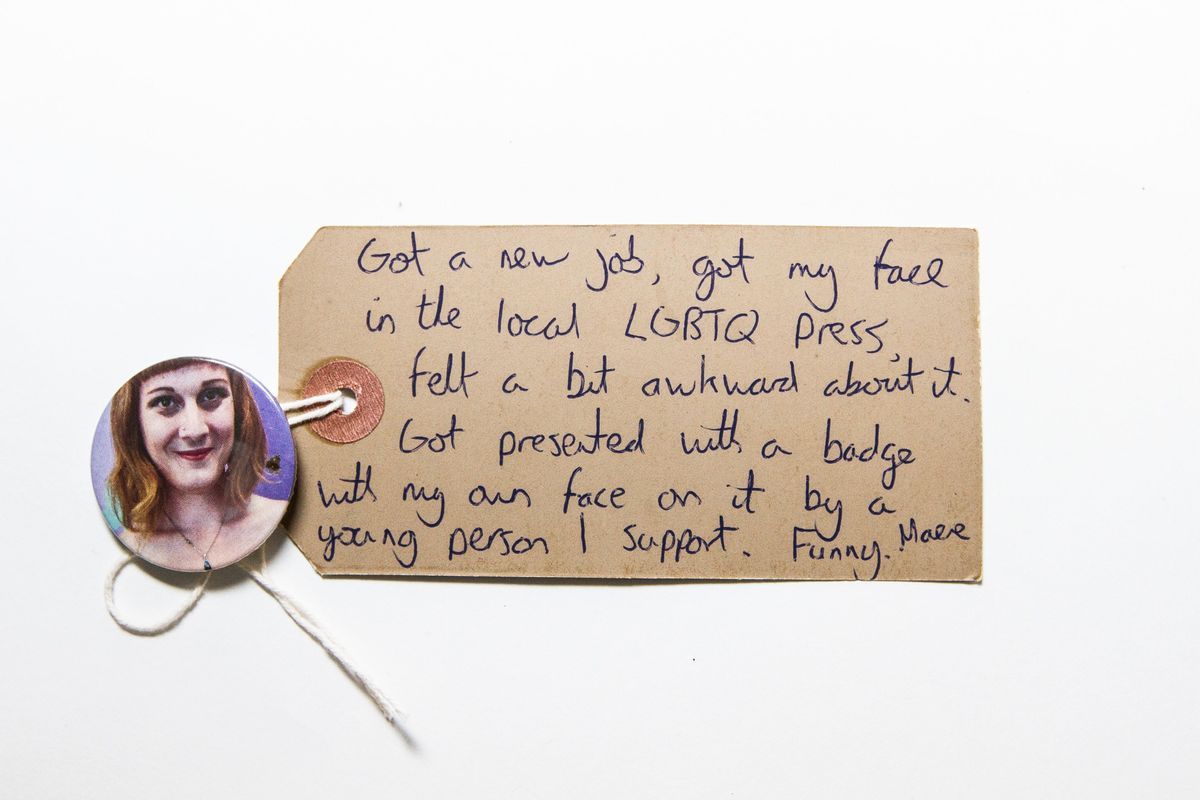 Got a new job, got my face
in the local LGBTQ press,
felt a bit awkward about it.
Got presented with a badge
with my own face on it by a
young person I support. Funny. Maeve